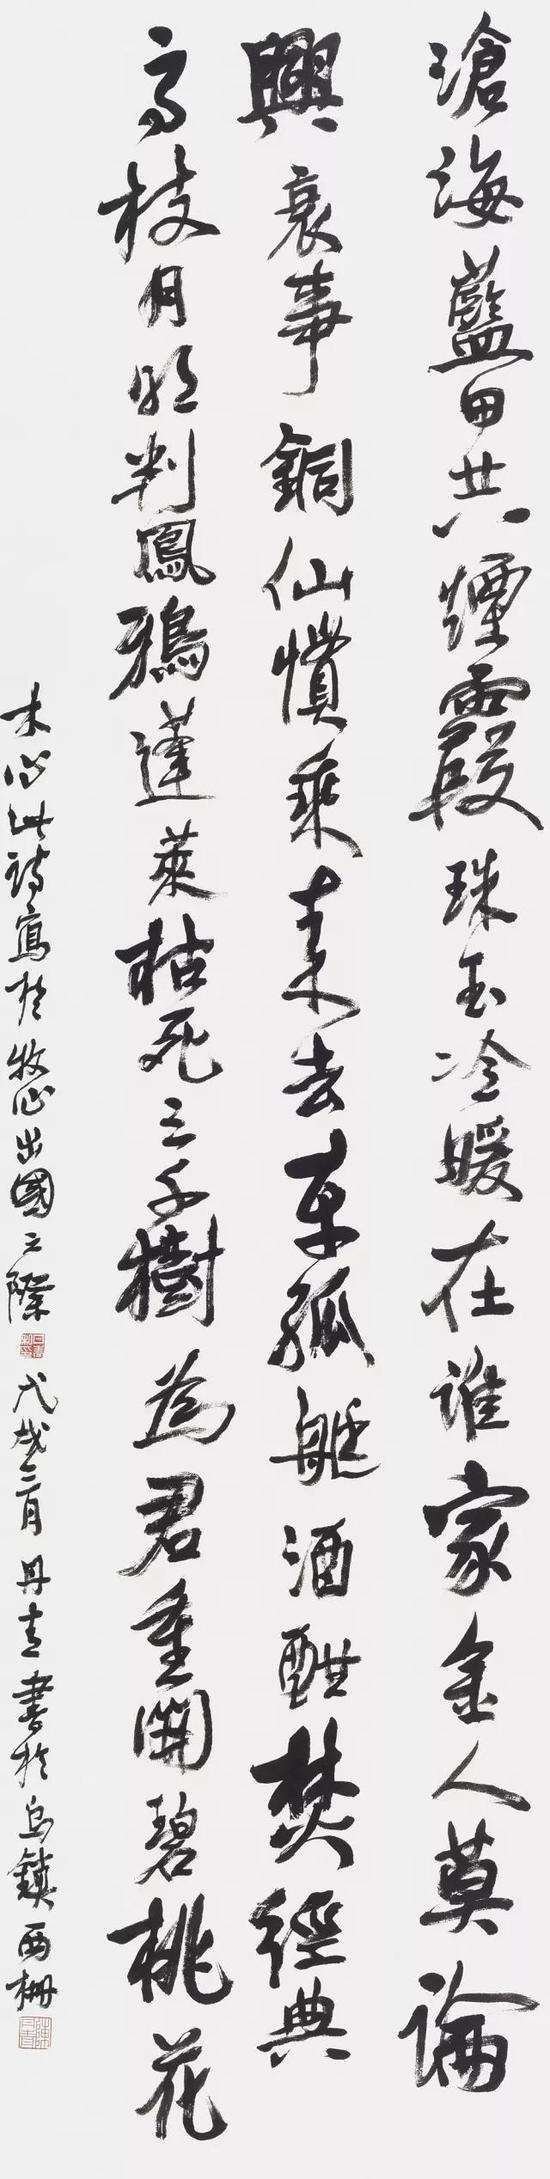 滄海藍田共煙霞珠玉冷暖在誰家金人莫論
興衰事銅仙慣乘來去車孤艇酒酣焚經典
高枝月明判鳳鴉蓬萊枯死三千樹為君重開碧桃花
木心此詩寫於牧心出國之際 戊戌三月丹青書於烏鎮西柵
陳丹青